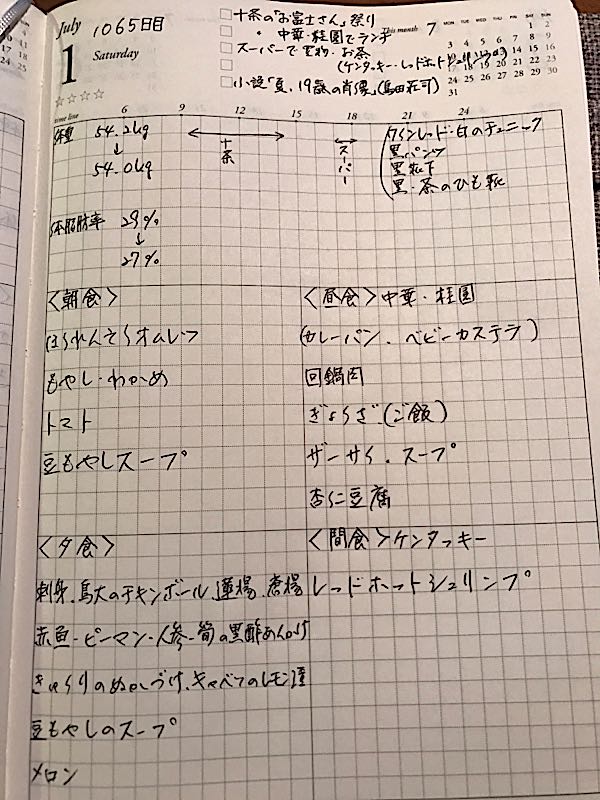 July 1065日目
1 Saturday
十条の「お富士さん」祭り
〃 中華・桂園でランチ
スーパーで買物・お茶
(ケンタッキー・レッドホットシュリンプ
小説「夏、19歳の肖像」(島田荘司)
this month 7 MON TUE WED THU FRI SAT SUN
1 2
3 4 5 6 7 8 9
10 11 12 13 14 15 16
17 18 19 20 21 22 23
24 25 26 27 28 29 30
31
time line 6 9 12 15 18 21 24
体重 54.2kg
↓
54.0kg
十条
スーパー
ワインレッド・白のチュニック
黒パンツ
黒靴下
黒・茶のひも靴
体脂肪率 29%
↓
27%
<朝食>
ほうれんそうオムレツ
もやし・わかめ
トマト
豆もやしスープ
<昼食>中華・桂園
(カレーパン、ベビーカステラ)
回鍋肉
ぎょうざ(ご飯)
ザーサイ・スープ
杏仁豆腐
<夕食>
刺身、鳥大のチキンボール、蓮揚、唐揚
赤魚・ピーマン・人参・筍の黒酢あんかけ
きゅうりのぬかづけ、キャベツのレモン漬
豆もやしのスープ
メロン
<間食>ケンタッキー
レッドホットシュリンプ